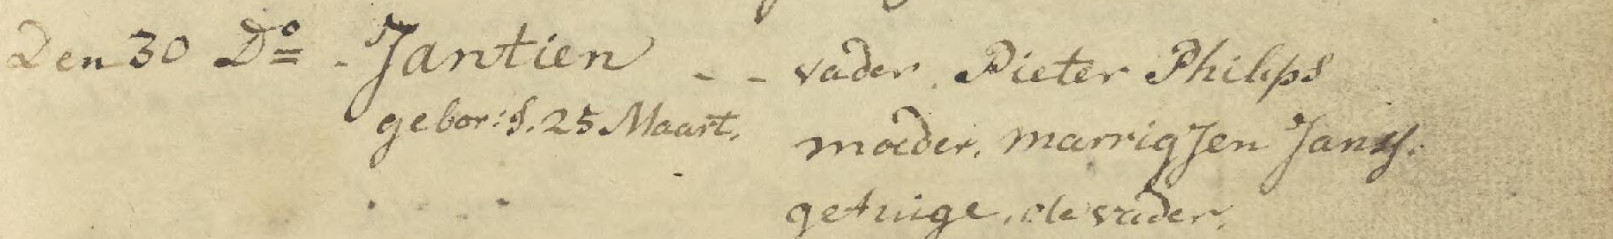 Den 30 Do - Jantien - - vader. Pieter Philips
gebor: d. 25 Maart. moeder. marrigjen Jans.
getuige. de vader.